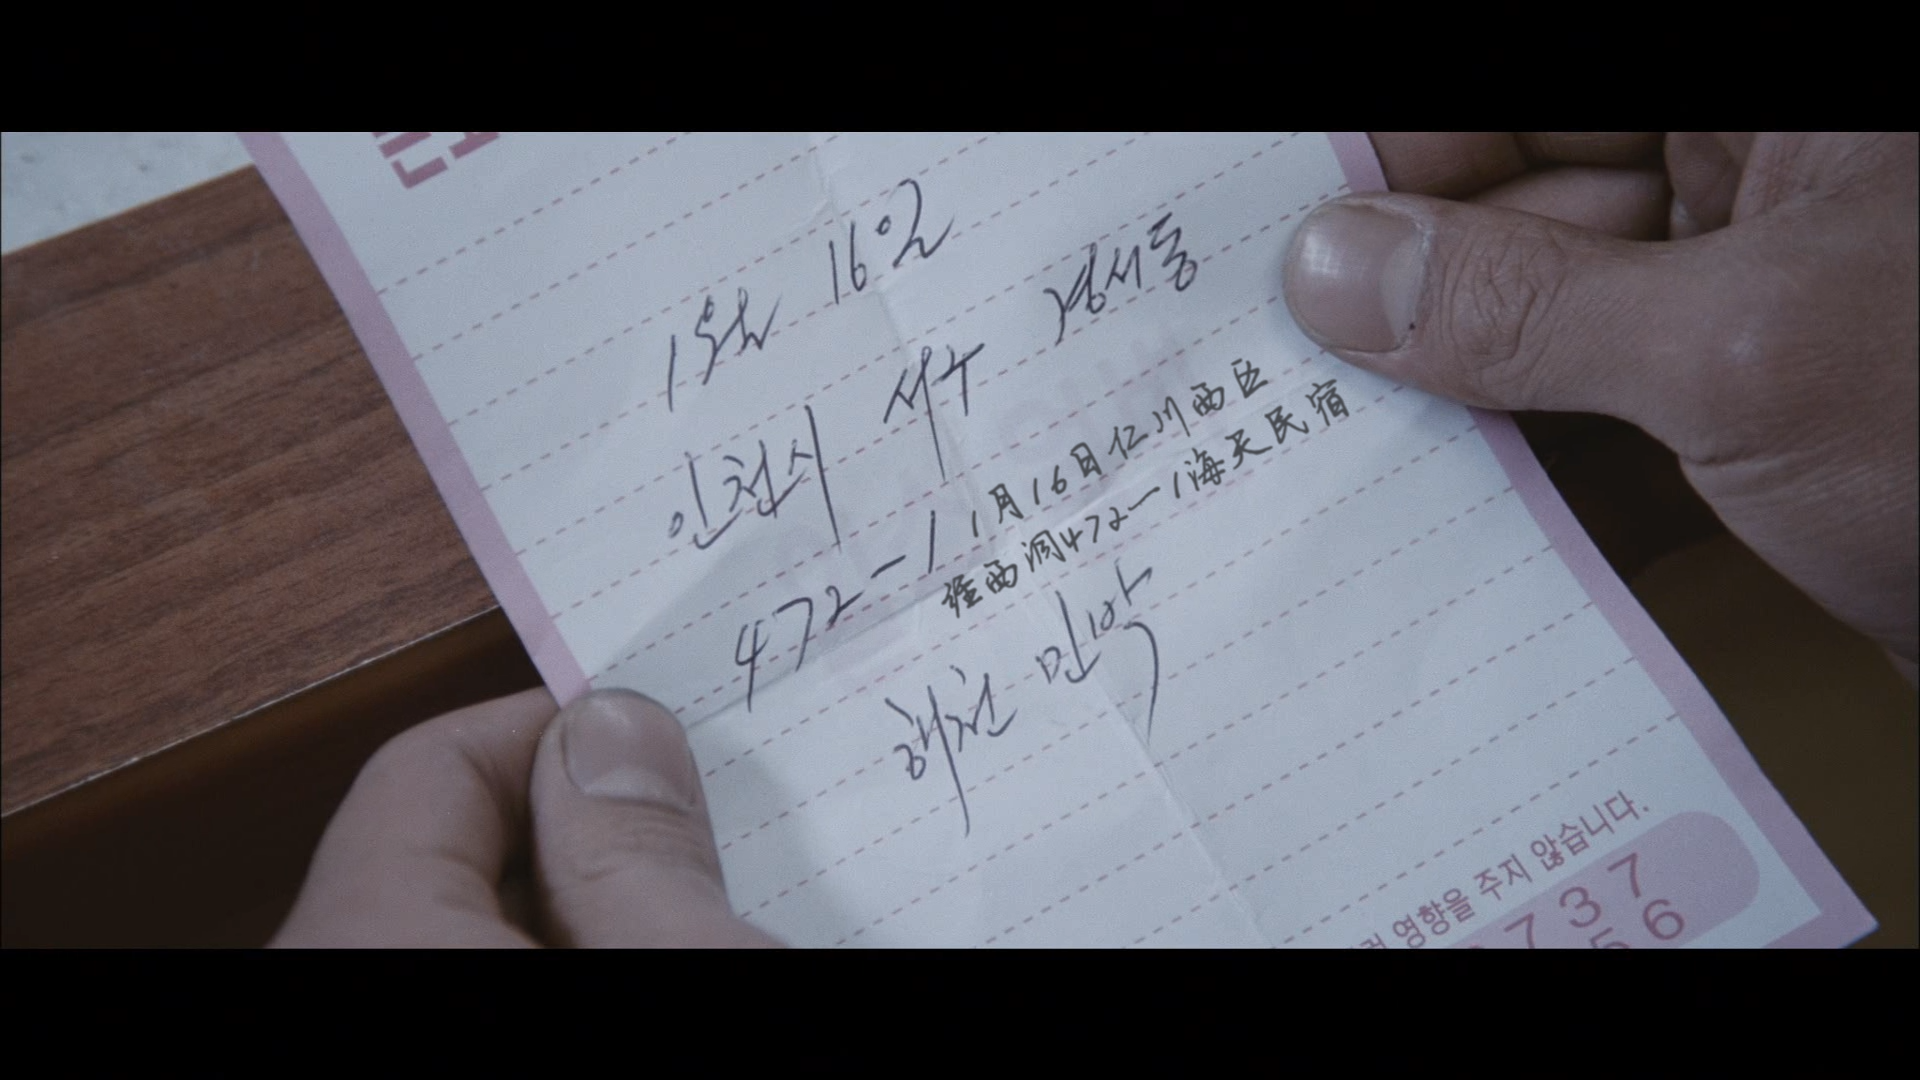 1월 16일
인천시 서구 경서동
472-1
1月16日仁川西区
经西洞472-1海天民宿
해천 민박
영향을 주지 않습니다.
737
56